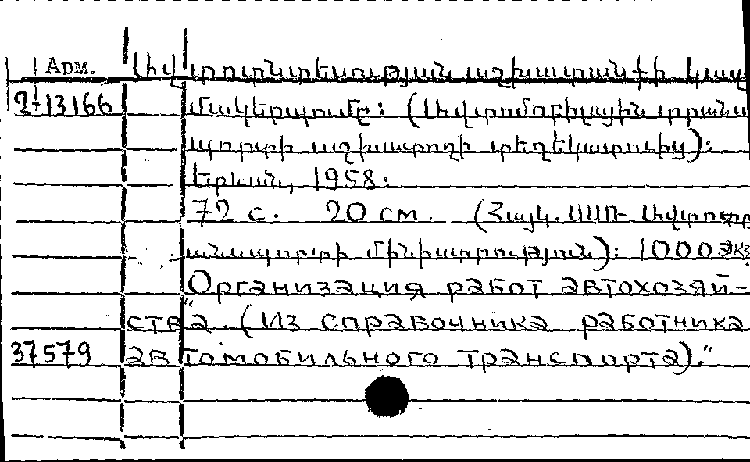 Арм. Ավտոտնտեսության աշխատանքի կազ
2-13166 մակերպումը: (Ավտոմոբիլային տրանս
պորտի աշխատողի տեղեկատուից):
Երևան, 1958:
72 с. 20 см. (Հայկ. ՍՍՌ- Ավտոտր
անսպորտի մինիստրություն): 1000 экз
"Организация работ автохозяй-
ства. (Из справочника работника
37579 автомобильного транспорта)."